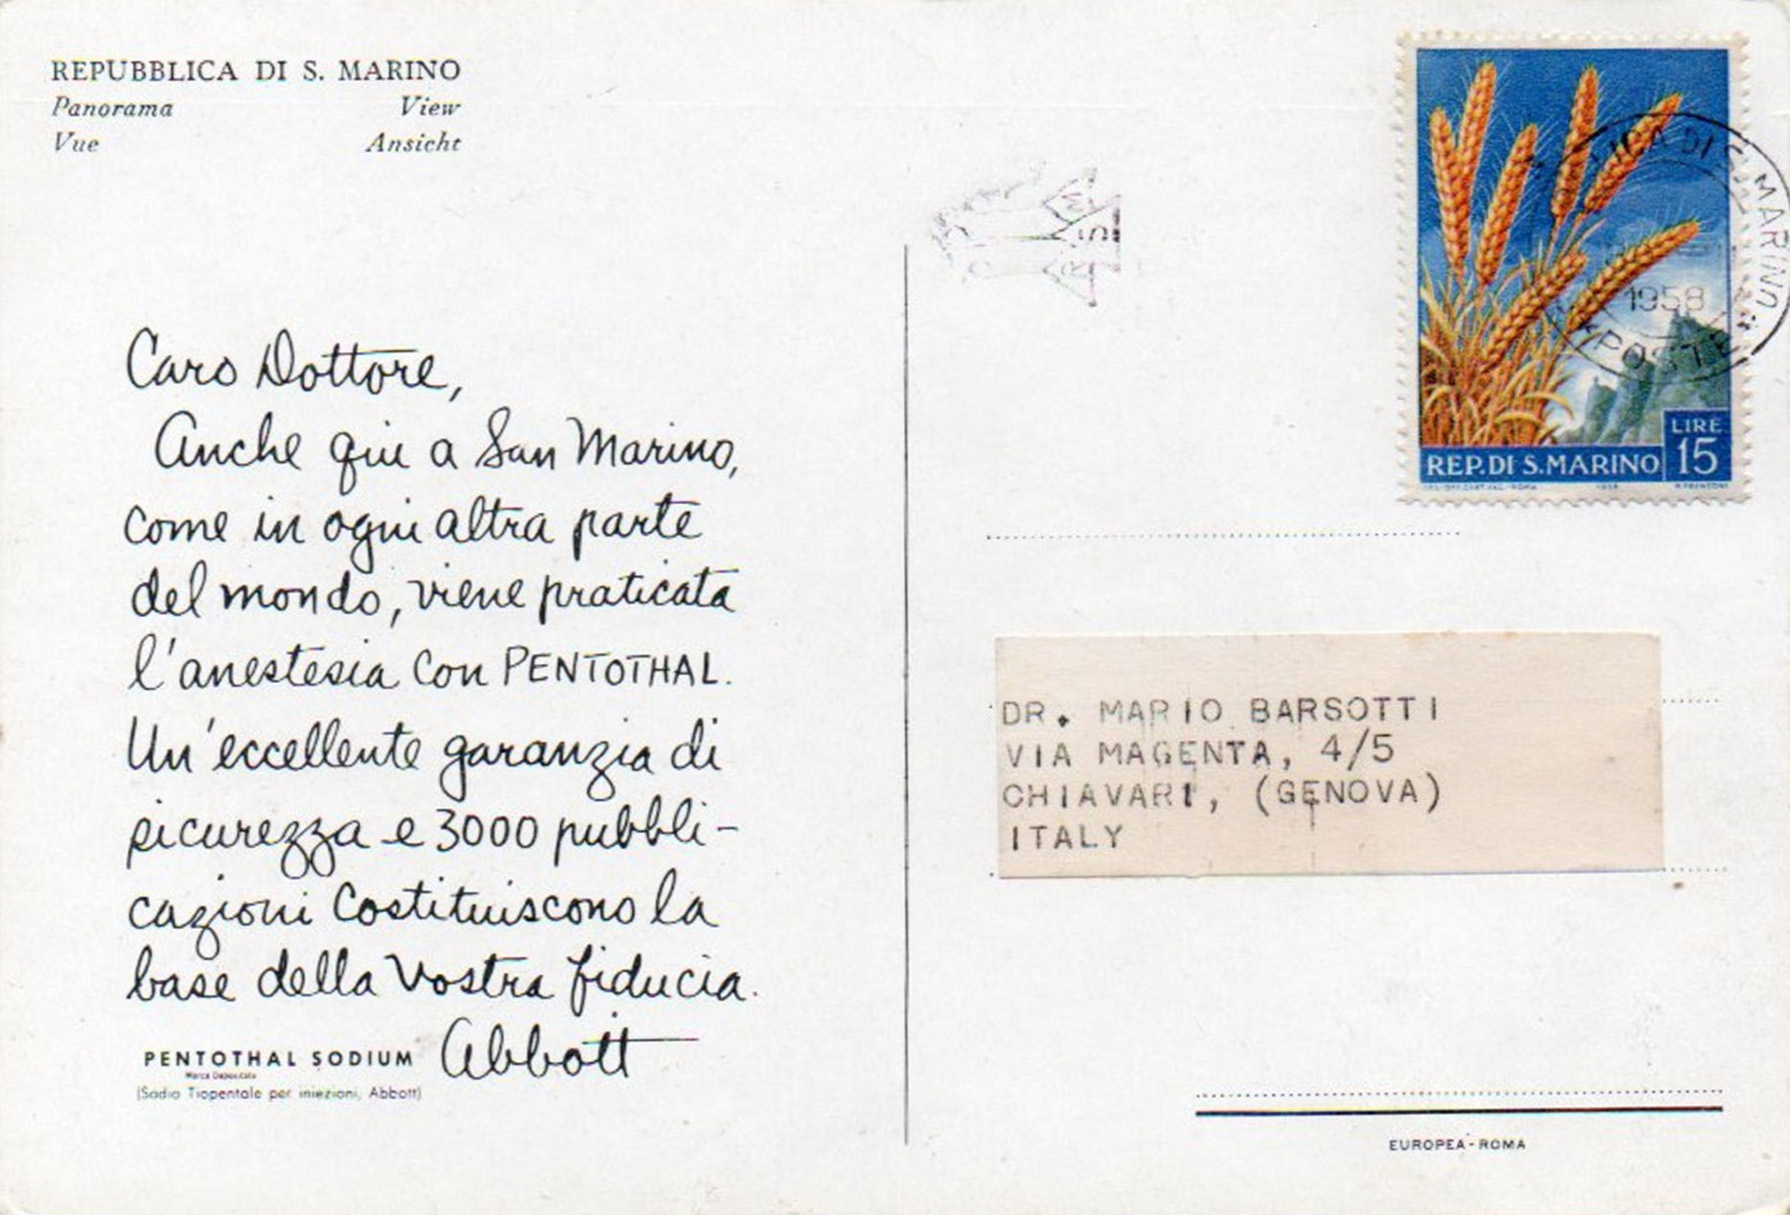 REPUBBLICA DI S. MARINO
Panorama View
Vue Ansicht
Caro Dottore,
Anche qui a San Marino,
come in ogni altra parte
del mondo, viene praticata
l'anestesia con PENTOTHAL.
Un'eccellente garanzia di
sicurezza e 3000 pubbli-
cazioni costituiscono la
base della Vostra fiducia.
Abbott
PENTOTHAL SODIUM
Marca Depositata
(Sodio Tiopentale per iniezioni, Abbott)
DI S. MARINO
1958
POSTE
LIRE
REP. DI S. MARINO 15
DR. MARIO BARSOTTI
VIA MAGENTA, 4/5
CHIAVARI, (GENOVA)
ITALY
EUROPEA - ROMA